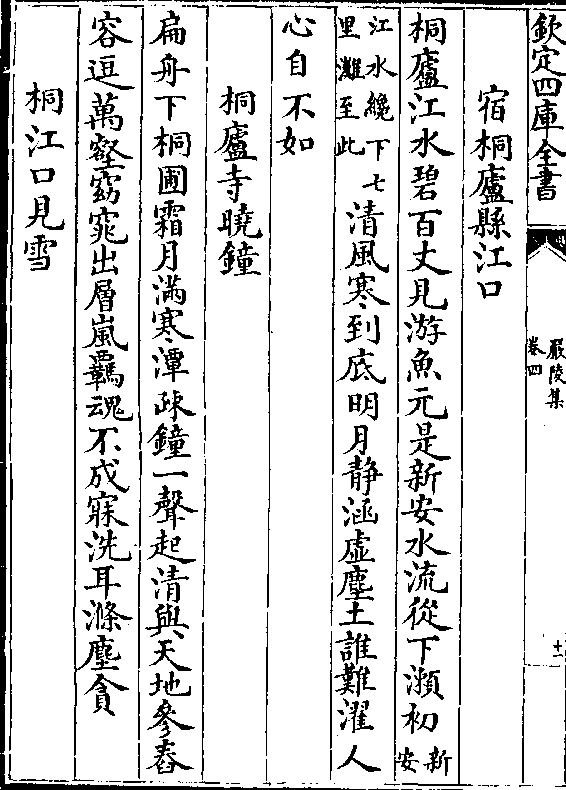 欽定四庫全書
嚴陵集
卷四
十一
宿桐廬縣江口
桐廬江水碧百丈見游魚元是新安水流從下瀨初新安
江水纔下七里灘至此清風寒到底明月静涵虚塵土誰難濯人
心自不如
桐廬寺曉鐘
扁舟下桐圃霜月滿寒潭疎鐘一聲起清與天地參舂
容逗萬壑窈窕出層嵐羈魂不成寐洗耳滌塵貪
桐江口見雪